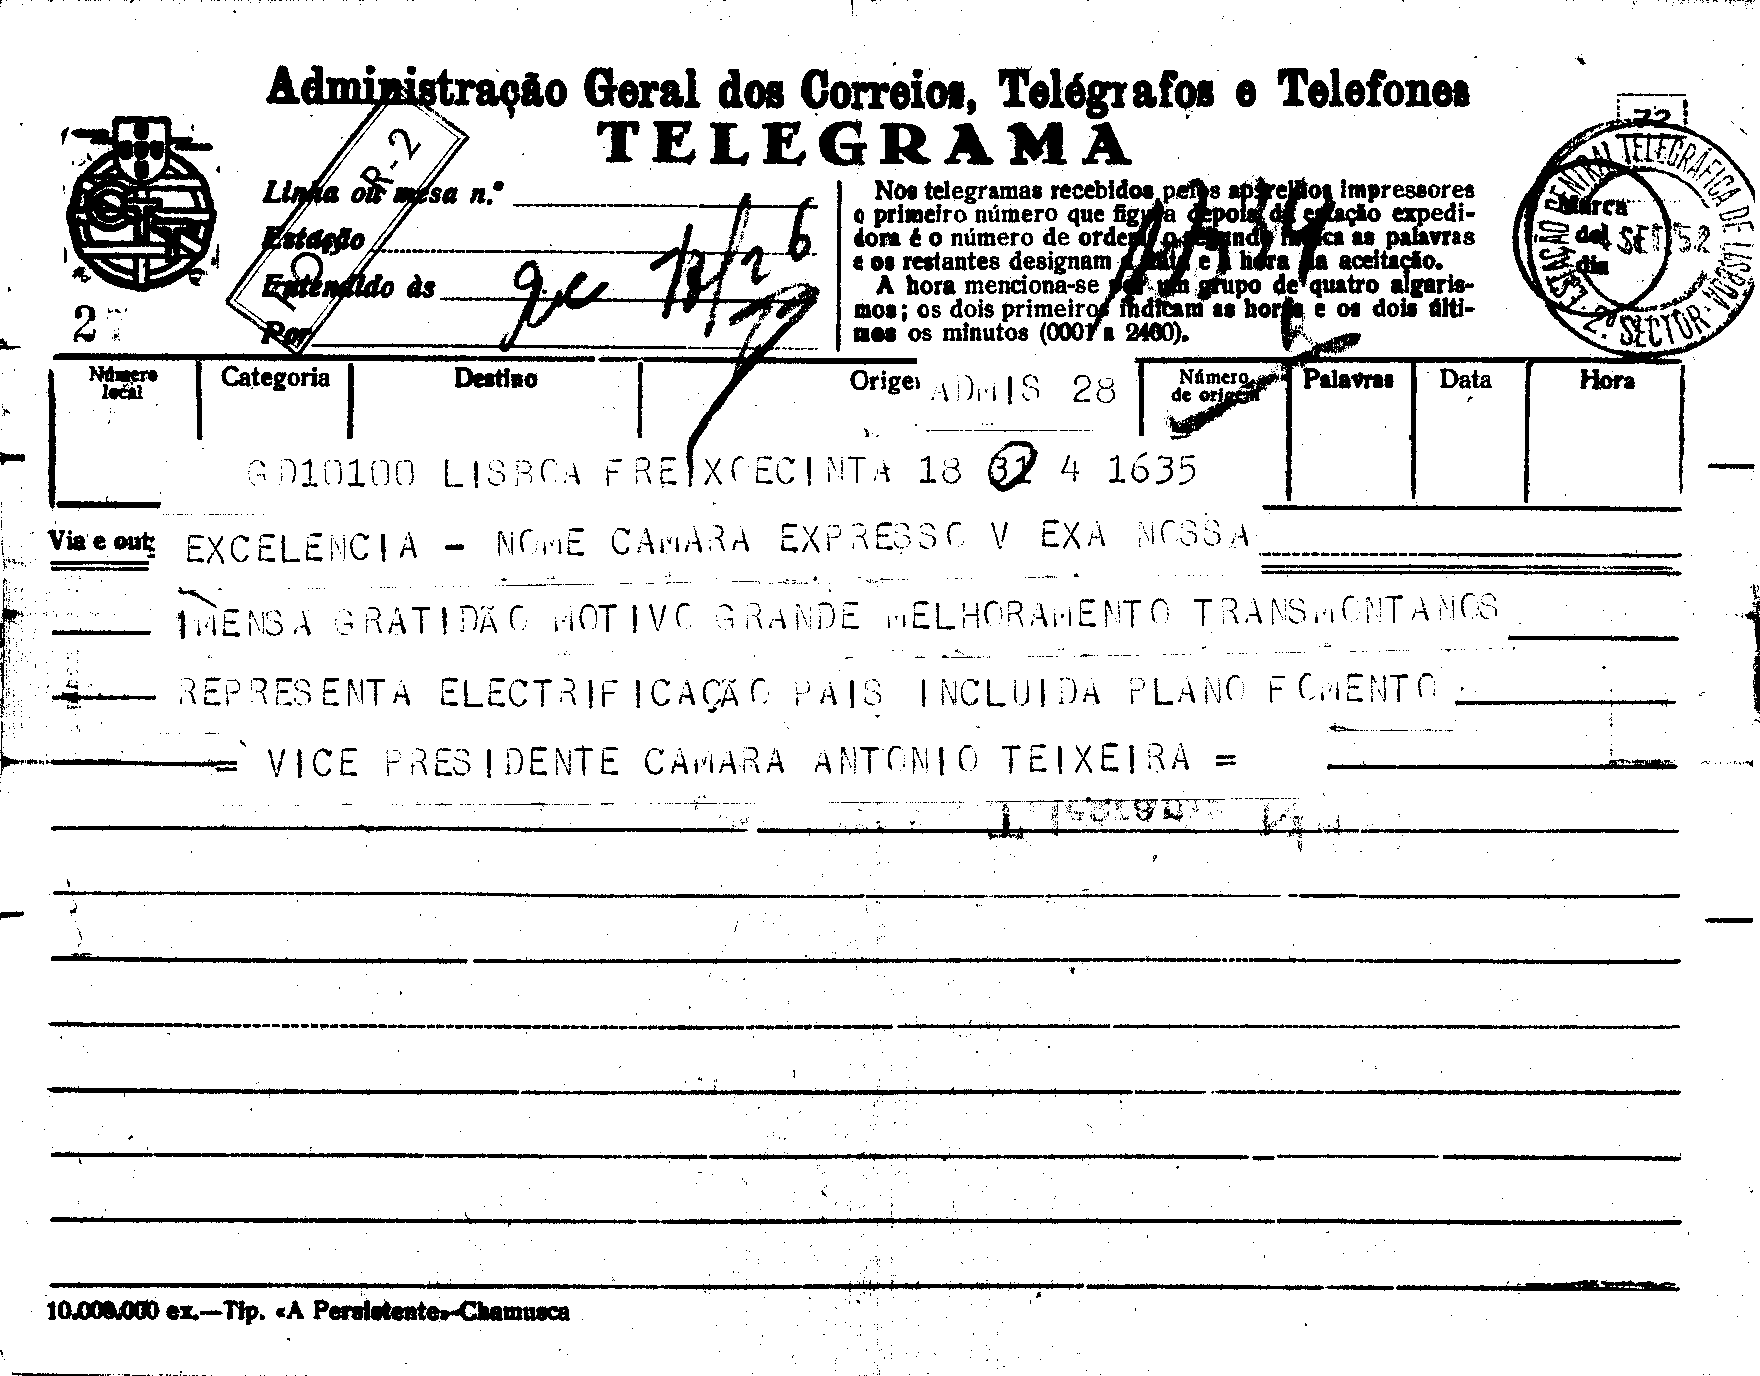 Administração Geral dos Correios, Telégrafos e Telefones
TELEGRAMA
R-2
Linha ou mesa n.º
Estação
Entendido às
Por
27
Nos telegramas recebidos pelos aparelhos impressores
o primeiro número que figura depois da estação expedi-
dora é o número de ordem, o segundo indica as palavras
e os restantes designam a data e a hora da aceitação.
A hora menciona-se por um grupo de quatro algaris-
mos; os dois primeiros indicam as horas e os dois últi-
mos os minutos (0001 a 2400).
72
ESTAÇÃO CENTRAL TELEGRAFICA DE LISBOA
Marca
del
dia
SET 52
2.º SECTOR
Número
local
Categoria
Destino
Orige
ADMIS 28
Número
de origem
Palavras
Data
Hora
GD10100 LISBOA FREIXOECINTA 18 31 4 1635
Via e out
EXCELENCIA - NOME CAMARA EXPRESSO V EXA NOSSA
IMENSA GRATIDÃO MOTIVO GRANDE MELHORAMENTO TRANSMONTANOS
REPRESENTA ELECTRIFICAÇÃO PAIS INCLUIDA PLANO FOMENTO
= VICE PRESIDENTE CAMARA ANTONIO TEIXEIRA =
10.000.000 ex.—Tip. «A Persistente»—Chamusca